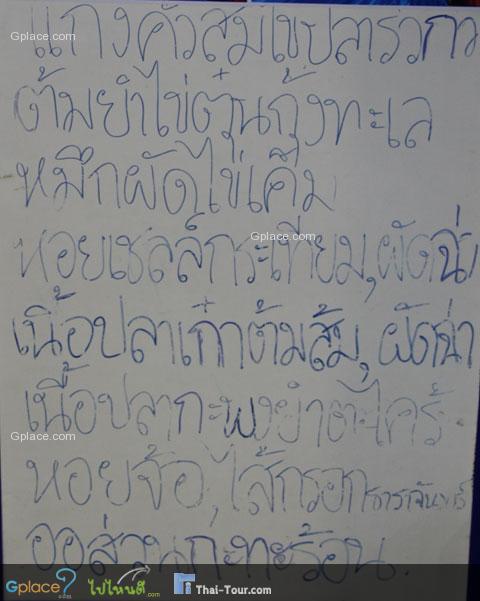 แกงคั่วส้มไข่ปลาริวกิว
ต้มยำไข่ตุ๋นกุ้งทะเล
หมึกผัดไข่เค็ม
หอยเชลล์กระเทียม,ผัดฉ่า
เนื้อปลาเก๋าต้มส้ม,ผัดฉ่า
เนื้อปลากะพงยำตะไคร้
หอยจ้อ,ไส้กรอก
ออส่วนกะทะร้อน.
Gplace.com
Gplace.com
Gplace.com
Gplace.com
Gplace ไปไหนดี.com Thai-Tour.com